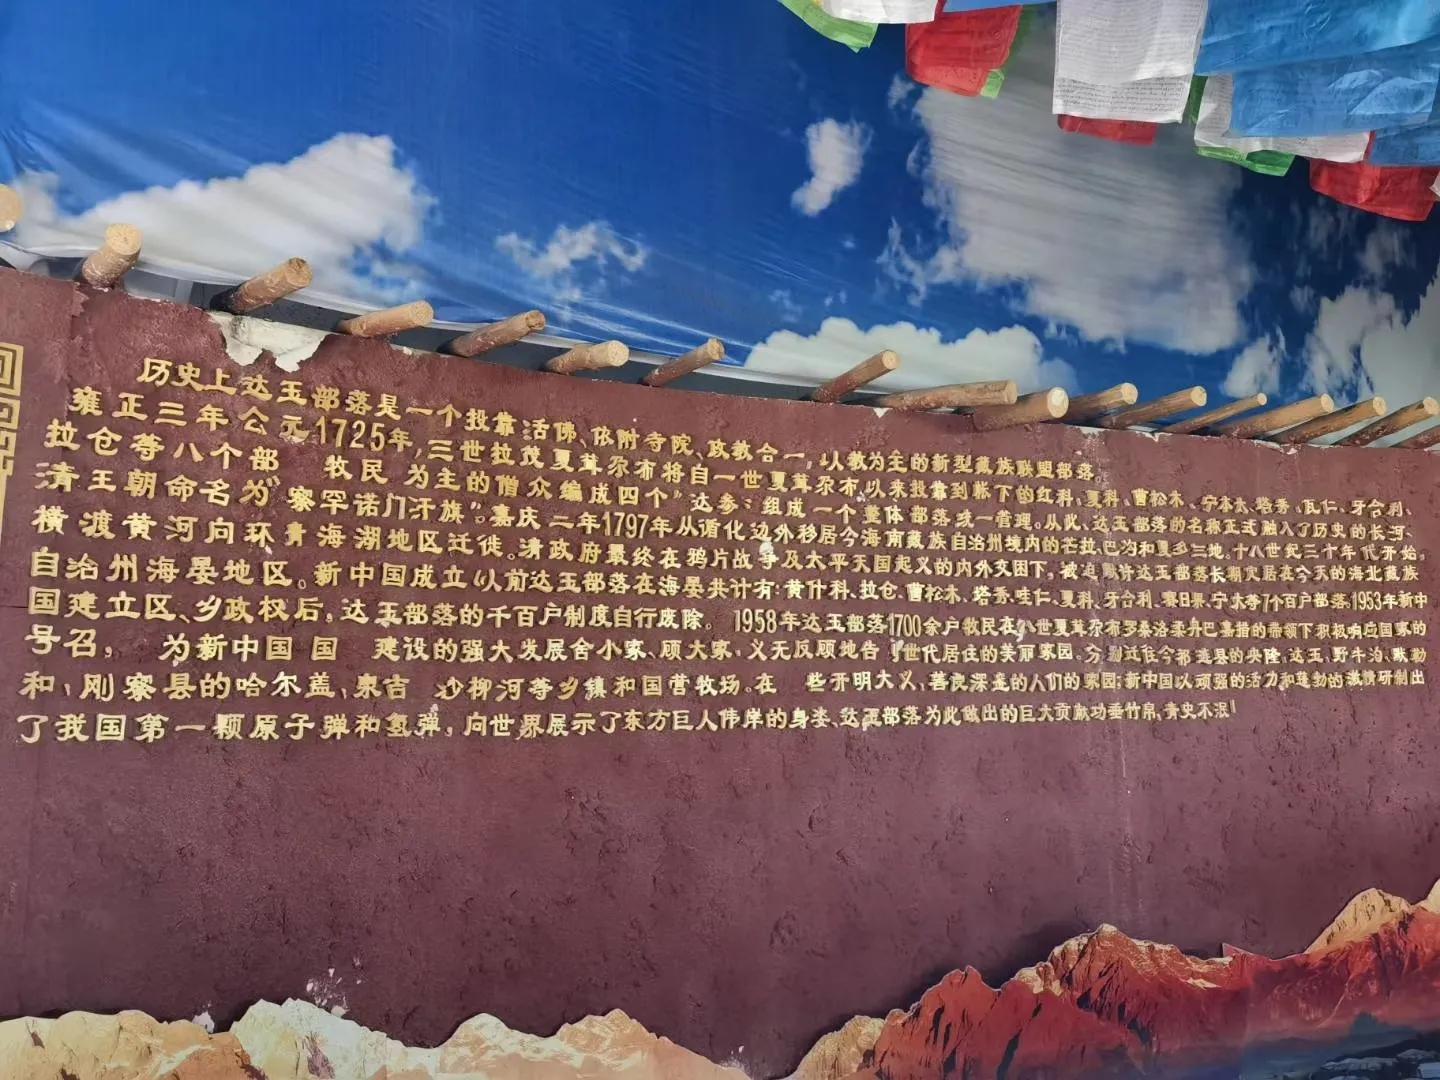 历史上达玉部落是一个投靠活佛、依附寺院、政教合一,以教为主的新型藏族联盟部落。
雍正三年公元1725年,三世拉茂夏茸尕布将自一世夏茸尕布以来投靠到帐下的红科、夏科、曹松木、宁本太、塔秀、瓦仁、牙合利、
拉仓等八个部 牧民 为主的僧众编成四个"达参":组成一个整体部落统一管理。从此、达玉部落的名称正式融入了历史的长河、
清王朝命名为"察罕诺门汗旗"。嘉庆二年1797年从循化边外移居今海南藏族自治州境内的芒拉、巴沟和夏多三地。十八世纪三十年代开始,
横渡黄河向环青海湖地区迁徙。清政府最终在鸦片战争及太平天国起义的内外交困下,被迫 许达玉部落长期定居在今天的海北藏族
自治州海晏地区。新中国成立以前达玉部落在海晏共计有:黄什科、拉仓、曹松木、塔秀、哇仁、夏科、牙合利、赛日果、宁 太等7个百户部落。1953年新中
国建立区、乡政权后,达玉部落的千百户制度自行废除。 1958年达玉部落1700余户牧民在八世夏茸尕布罗桑洛柔丹巴嘉措的带领下积极响应国家的
号召, 为新中国 国 建设的强大发展舍小家、顾大家,义无反顾地告 了世代居住的美丽家园。分别迁往今祁连县的央隆,达玉、野牛沟、默勒
和,刚察县的哈尔盖,泉吉 沙柳河等乡镇和国营牧场。在 些开明大义,善良深 的人们的家园;新中国以顽强的活力和蓬勃的激情研制出
了我国第一颗原子弹和氢弹,向世界展示了东方巨人伟岸的身姿、达玉部落为此做出的巨大贡献功垂竹帛,青史不泯!